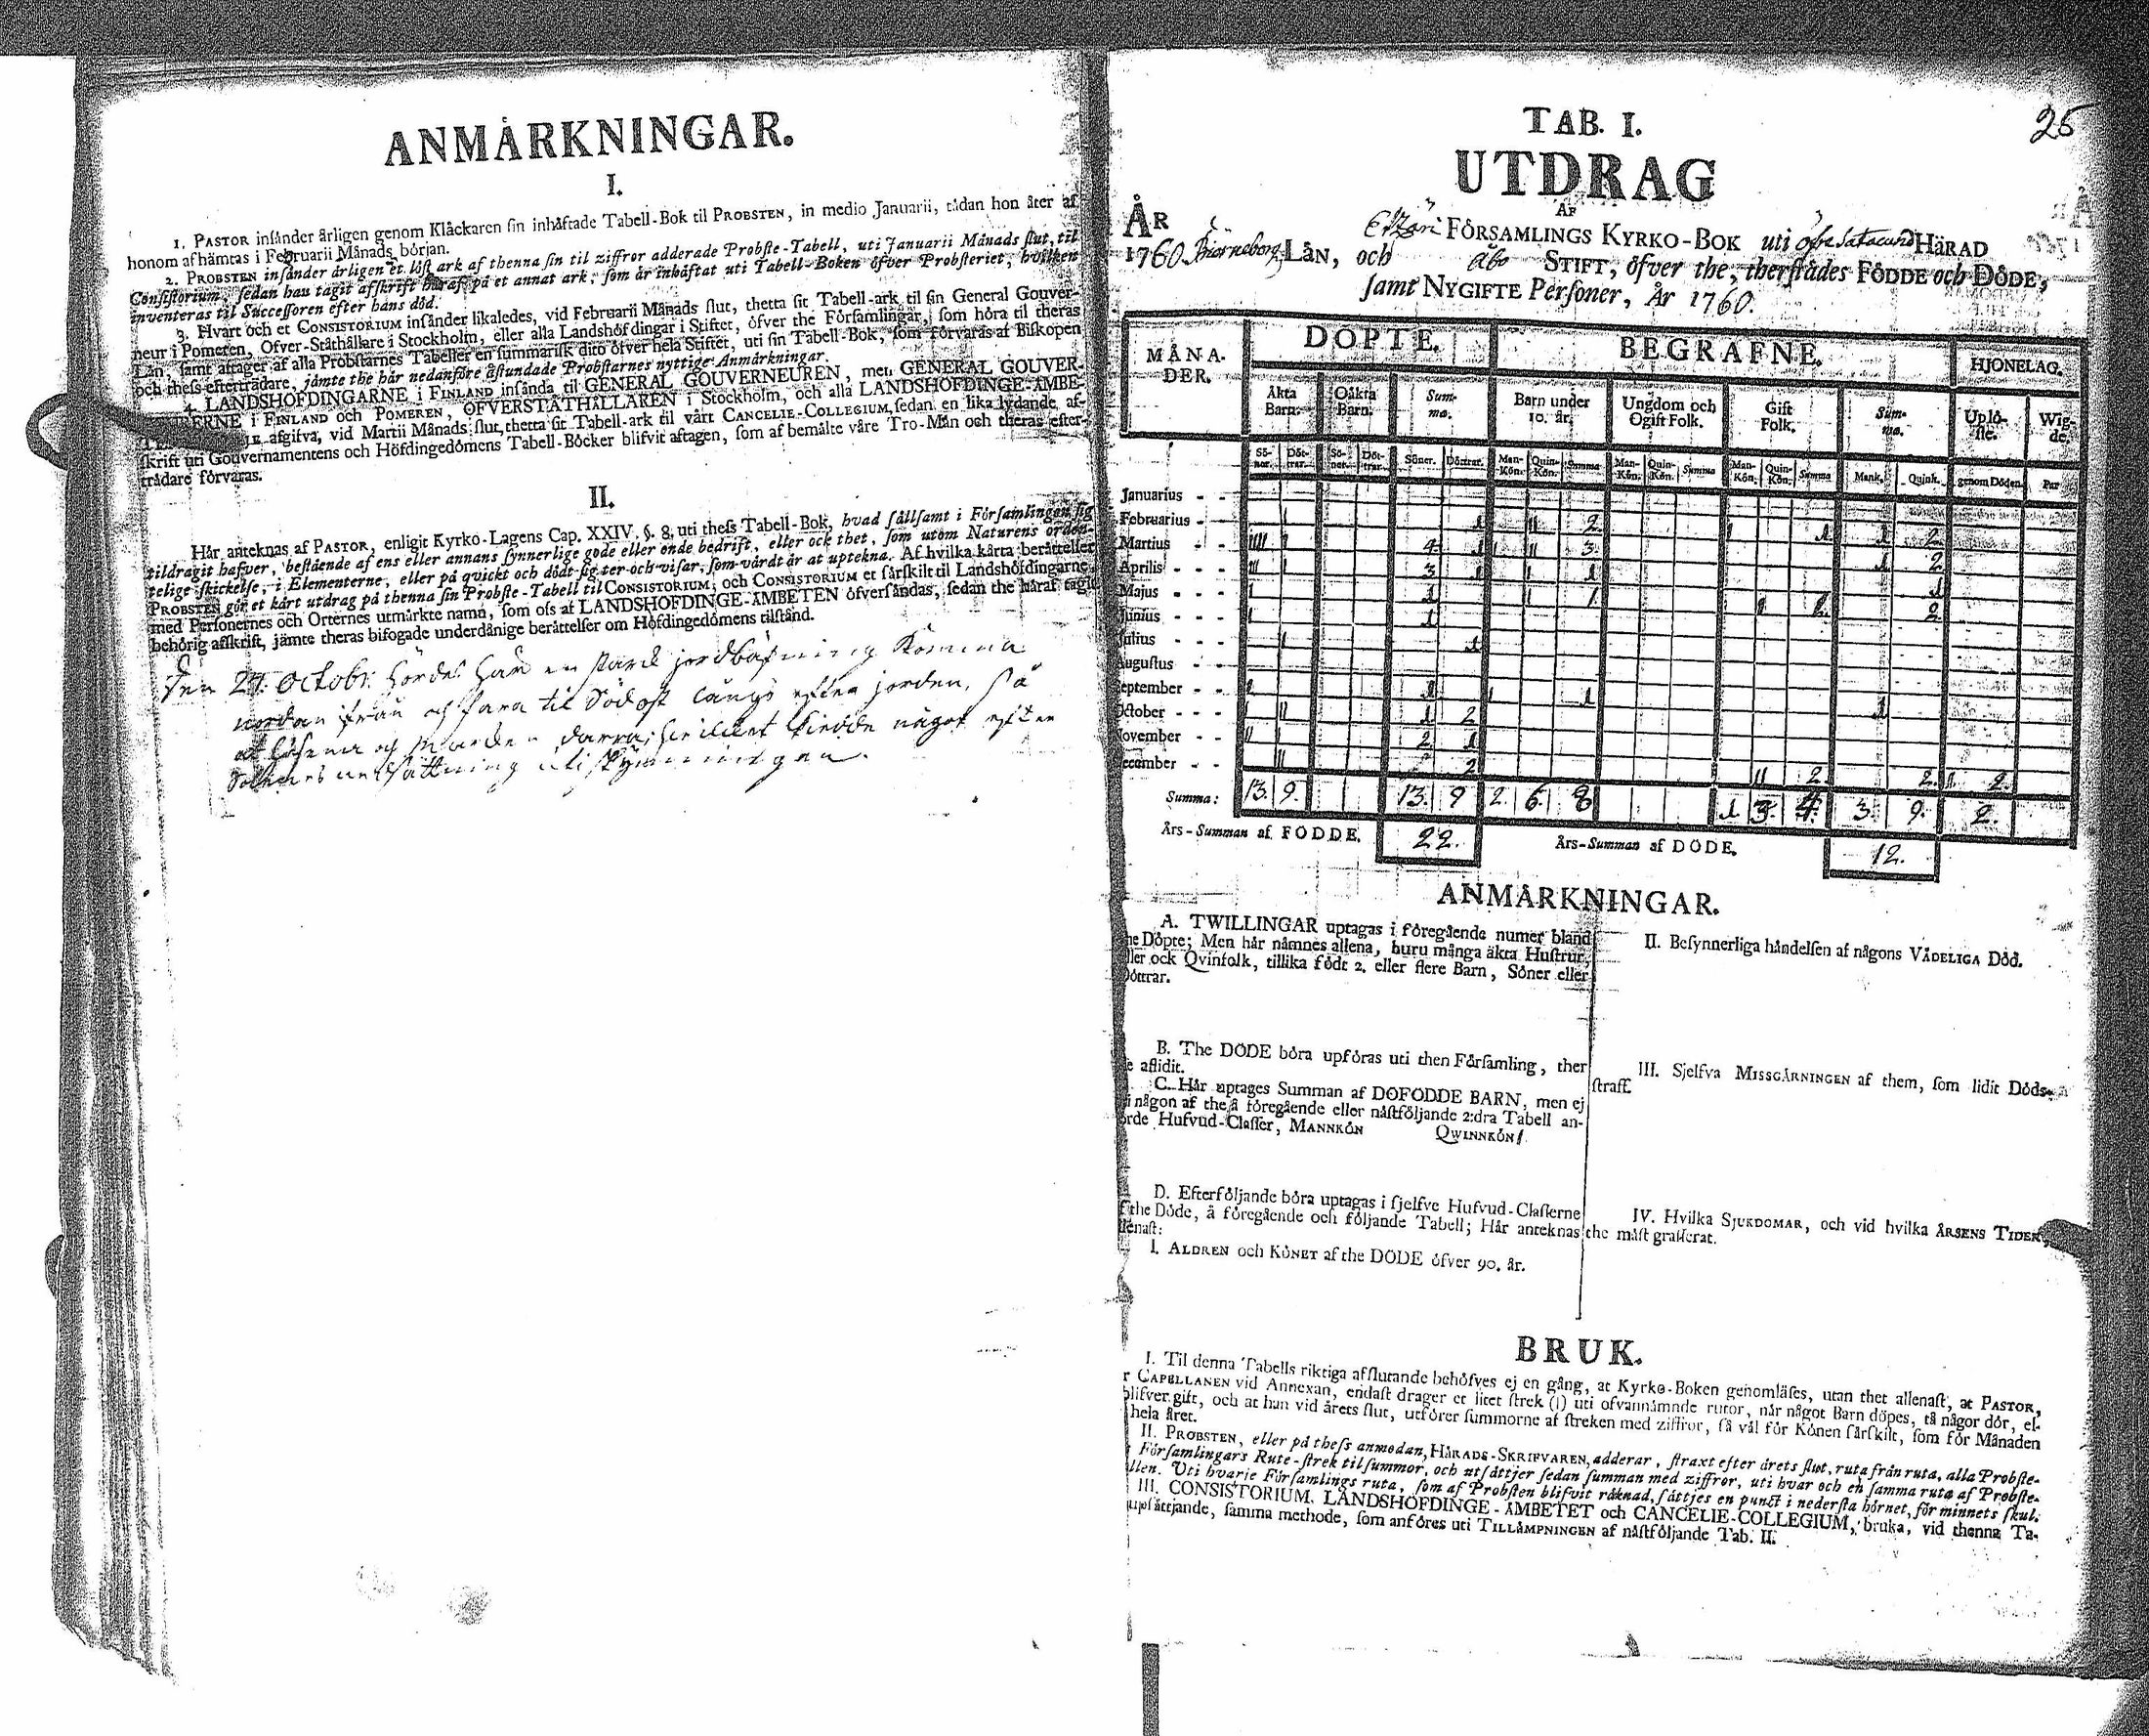 ANMÅRKNINGAR.
I.
1. PASTOR insånder årligen genom Klåckaren sin inhåftade Tabell-Bok til PROBSTEN, in medio Januarii, tådan hon åter af
honom afhämtas i Februarii Månads början.
2. PROBSTEN insånder årligen et löst ark af thenna sin til ziffror adderade Probste-Tabell, uti Januarii Månads slut, til
Consistorium, sedan han tagit afskrift håraf på et annat ark, som år inhåftat uti Tabell-Boken öfver Probsteriet, hvilken
inventeras til Successoren efter hans död.
3. Hvart och et CONSISTORIUM insånder likaledes, vid Februarii Månads slut, thetta sit Tabell-ark til sin General Gouver-
neur i Pomeren, Öfver-Ståthållare i Stockholm, eller alla Landshöfdingar i Stiftet, öfver the Församlingar, som höra til theras
Lån, samt aftager af alla Probstarnes Tabeller en summarisk dito öfver hela Stiftet, uti sin Tabell-Bok, som förvaras af Biskopen
och thess eftertrådare, jämte the hår nedanföre åstundade Probstarnes nyttige Anmårkningar.
4. LANDSHÖFDINGARNE i FINLAND insånda til GENERAL GOUVERNEUREN, men GENERAL GOUVER-
NEURERNE i FINLAND och POMEREN, ÖFVERSTÅTHÅLLAREN i Stockholm, och alla LANDSHÖFDINGE-ÅMBE-
afgifva, vid Martii Månads slut, thetta sit Tabell-ark til vårt CANCELIE-COLLEGIUM, sedan en lika lydande af-
skrift uti Gouvernamentens och Höfdingedömens Tabell-Böcker blifvit aftagen, som af bemålte våre Tro-Mån och theras efter-
trådare förvaras.
II.
Hår anteknas af PASTOR, enligit Kyrko-Lagens Cap. XXIV. §. 8. uti thess Tabell-Bok, hvad sållsamt i Församlingen sig
tildragit hafver, bestående af ens eller annans synnerlige gode eller onde bedrift, eller ock thet, som utom Naturens orden-
telige skickelse, i Elementerne, eller på quickt och dödt sig ter och visar, som vårdt år at uptekna. Af hvilka kårta beråttelser
PROBSTEN gör et kårt utdrag på thenna sin Probste-Tabell til CONSISTORIUM, och CONSISTORIUM et sårskilt til Landshöfdingarne,
med Personernes och Orternes utmårkte namn, som oss af LANDSHÖFDINGE-ÅMBETEN öfversåndas, sedan the håraf tagit
behörig afskrift, jämte theras bifogade underdånige beråttelser om Höfdingedömens tilstånd.
Den 27. Octobr. hördes här en stark jordbäfning komma
nordan ifrån och fara til Södost långs efter jorden, så
at husena och marken darra, hvilket skedde något efter
Solenes nedsättning uti skymningen.
25
TAB. I.
UTDRAG
AF
ÅR Församlings Kyrko-Bok uti öfre Satacund HÅRAD
1760. Björneborg LÅN, och åbo STIFT, öfver the, therstådes FÖDDE och DÖDE,
samt NYGIFTE Personer, År 1760.
MÅNA-DER. DÖPTE. BEGRAFNE. HJONELAG.
Äkta Barn. Oåkta Barn. Sum-ma. Barn under 10. år. Ungdom och Ogift Folk. Gift Folk. Sum-ma. Uplö-ste. Wig-de.
Sö-ner. Döt-trar. Sö-ner. Döt-trar. Söner. Döttrar. Man-Kön. Quin-Kön. Summa Man-Kön. Quin-Kön. Summa Man-Kön. Quin-Kön. Summa Mank. Quink. genom Döden. Par
Januarius - -
Februarius - - I 1 II 2. I 1 1 2
Martius - - IIII I 4 1 I II 3. 1 2
Aprilis - - - III I 3 1 I 1 1
Majus - - - I 1 I 1. II 2. 2.
Junius - - - I 1
Julius - - - I 1
Augustus - - -
September - - I 1 I 1 1
October - - - I II 1 2
November - - II I 2 1
December - - II 2 II 2. 2. II 2.
Summa: 13. 9. 13. 9 2. 6. 8 1 3. 4. 3. 9. 2.
Års-Summan af FÖDDE. 22. Års-Summan af DÖDE. 12.
ANMÅRKNINGAR.
A. TWILLINGAR uptagas i föregående numer bland
the Döpte; Men hår nåmnes allena, huru många åkta Hustrur,
eller ock Qvinfolk, tillika födt 2. eller flere Barn, Söner eller
Döttrar.
B. The DÖDE böra upföras uti then Församling, ther
the aflidit.
C. Hår uptages Summan af DÖFÖDDE BARN, men ej
i någon af the å föregående eller nåstföljande 2:dra Tabell an-
förde Hufvud-Classer, MANNKÖN QWINNKÖN I
D. Efterföljande böra uptagas i sjelfve Hufvud-Classerne
af the Döde, å föregående och följande Tabell; Hår anteknas
allenast:
I. ÅLDREN och KÖNET af the DÖDE öfver 90. år.
II. Besynnerliga håndelsen af någons VÅDELIGA Död.
III. Sjelfva MISSGÅRNINGEN af them, som lidit Döds-
straff.
IV. Hvilka SJUKDOMAR, och vid hvilka ÅRSENS TIDER,
the måst grasserat.
BRUK.
I. Til denna Tabells riktiga afslutande behöfves ej en gång, at Kyrko-Boken genomlåses, utan thet allenast, at PASTOR,
eller CAPELLANEN vid Annexan, endast drager et litet strek (I) uti ofvannåmnde rutor, når något Barn döpes, få någor dör, el-
blifver gift, och at han vid årets slut, utförer summorne af streken med ziffror, så vål för Könen sårskilt, som för Månaden
hela året.
II. PROBSTEN, eller på thess anmodan, HÅRADS-SKRIFVAREN, adderar, straxt efter årets slut, ruta från ruta, alla Probste-
Församlingars Rute-strek til summor, och utsåttjer sedan summan med ziffror, uti hvar och en samma ruta af Probste-
llen. Uti hvarje Församlings ruta, som af Probsten blifvit råknad, såttjes en punct i nedersta hörnet, för minnets skul.
III. CONSISTORIUM, LANDSHÖFDINGE-ÅMBETET och CANCELIE-COLLEGIUM, bruka, vid thenna Ta-
upsåttjande, samma methode, som anföres uti TILLÅMPNINGEN af nåstföljande Tab. II.